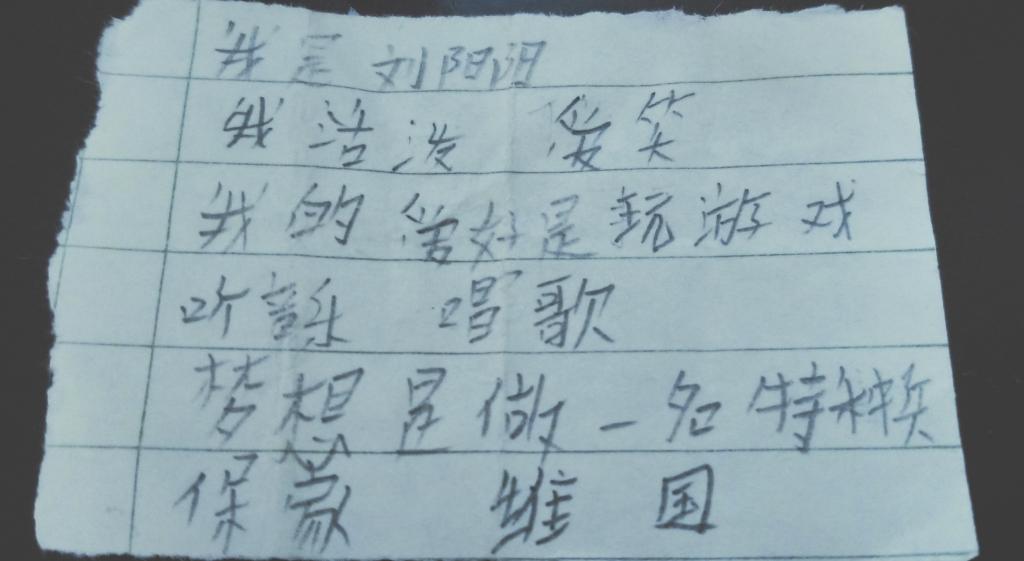 我是刘阳阳
我活泼 爱笑
我的爱好是玩游戏
听音乐 唱歌
梦想是做一名特种兵
保家 维国